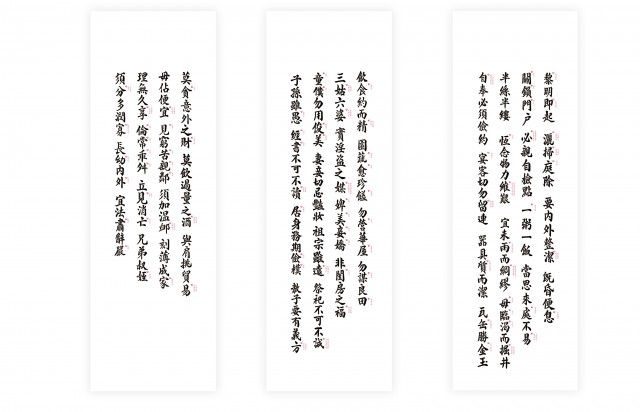 黎明即起 灑掃庭除 要內外整潔 既昏便息
關鎖門户 必親自檢點 一粥一飯 當思來處不易
半絲半縷 恆念物力維艱 宜未雨而綢繆 毋臨渴而掘井
自奉必須儉約 宴客切勿留連 器具質而潔 瓦缶勝金玉
飲食約而精 園蔬愈珍饈 勿營華屋 勿謀良田
三姑六婆 實淫盜之媒 婢美妾嬌 非閨房之福
童僕勿用俊美 妻妾切忌豔妝 祖宗雖遠 祭祀不可不誠
子孫雖愚 經書不可不讀 居身務期儉樸 教子要有義方
莫貪意外之財 莫飲過量之酒 與肩挑貿易
毋佔便宜 見窮苦親鄰 須加溫卹 刻薄成家
理無久享 倫常乖舛 立見消亡 兄弟叔姪
須分多潤寡 長幼內外 宜法肅辭嚴